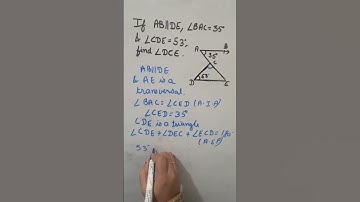 If AB∥DE, ∠BAC=35°
& ∠CDE=53°,
find ∠DCE.
A
B
35°
C
53°
D
AB∥DE
& AE is a
transversal.
∠BAC=∠CED (A.I.A)
∠CED=35°
∠CDE is a triangle
∠CDE+∠DEC+∠ECD=180°
(A.S.P)
53°